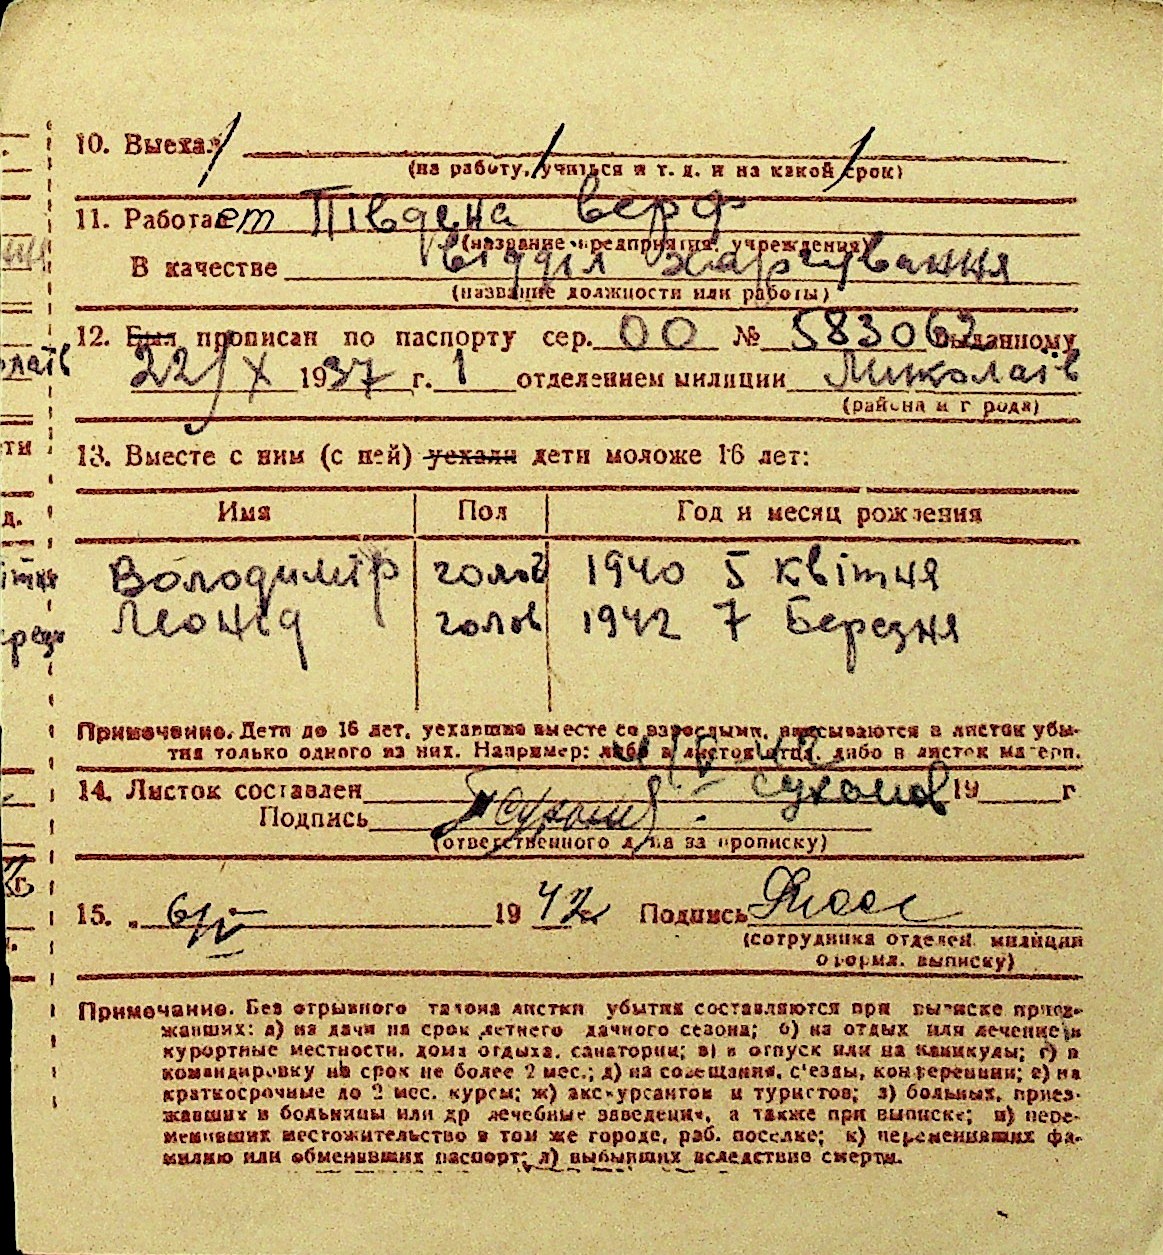 10. Выехал
(на работу, учиться и т. д. и на какой срок)
11. Работает Південа верф
(название предприятия, учреждения)
В качестве відділ харчування
(название должности или работы)
12. Был прописан по паспорту сер. 00 № 583062 выданному
22/X 1937 г. 1 отделением милиции Миколаїв
(района и города)
13. Вместе с ним (с ней) уехали дети моложе 16 лет:
Имя Пол Год и месяц рождения
Володимір голов 1940 5 квітня
Леонід голов 1942 7 Березня
Примечание. Дети до 16 лет, уехавшие вместе со взрослыми, вписываются в листок убы-
тия только одного из них. Например: либо в листок отца, либо в листок матери.
14. Листок составлен Сухонов 19 г
Подпись
(ответственного лица за прописку)
15. „ 6/V 1942 г. Подпись
(сотрудника отделен. милиции
оформл. выписку)
Примечание. Без отрывного талона листки убытия составляются при выписке приез-
жавших: а) на дачи на срок летнего дачного сезона; б) на отдых или лечение в
курортные местности, дома отдыха, санатории; в) в отпуск или на каникулы; г) в
командировку на срок не более 2 мес.; д) на совещания, с'езды, конференции; е) на
краткосрочные до 2 мес. курсы; ж) экскурсантов и туристов; з) больных, приез-
жавших в больницы или др лечебные заведения, а также при выписке; и) пере-
менивших местожительство в том же городе, раб. поселке; к) переменивших фа-
милию или обменявших паспорт; л) выбывших вследствие смерти.